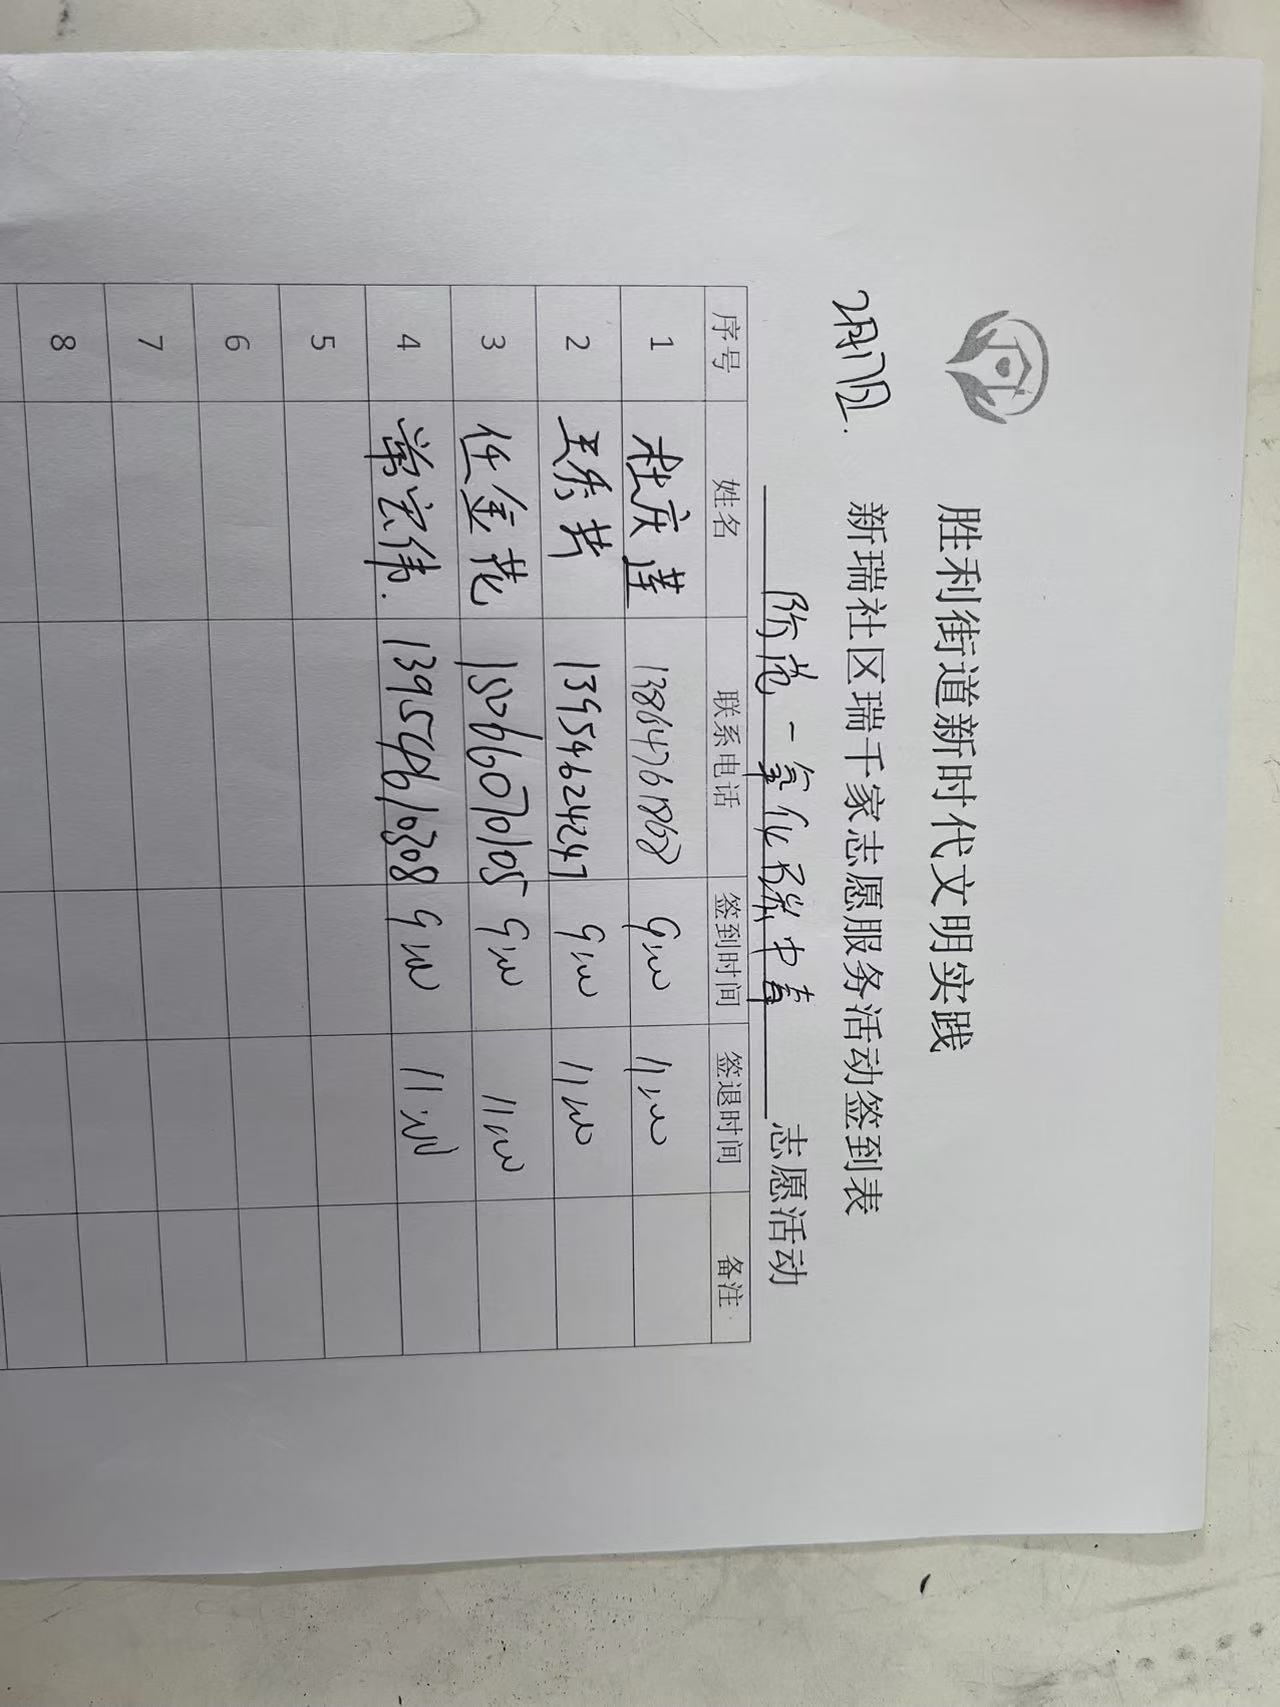 胜利街道新时代文明实践
2月17日. 新瑞社区瑞千家志愿服务活动签到表
防范一氧化碳中毒 志愿活动
序号 姓名 联系电话 签到时间 签退时间 备注
1 杜庆莲 9:00 11:00
2 王秀芳 13954624247 9:00 11:00
3 任金花 15066070105 9:00 11:00
4 常宏伟. 13954610308 9:00 11:00
5
6
7
8